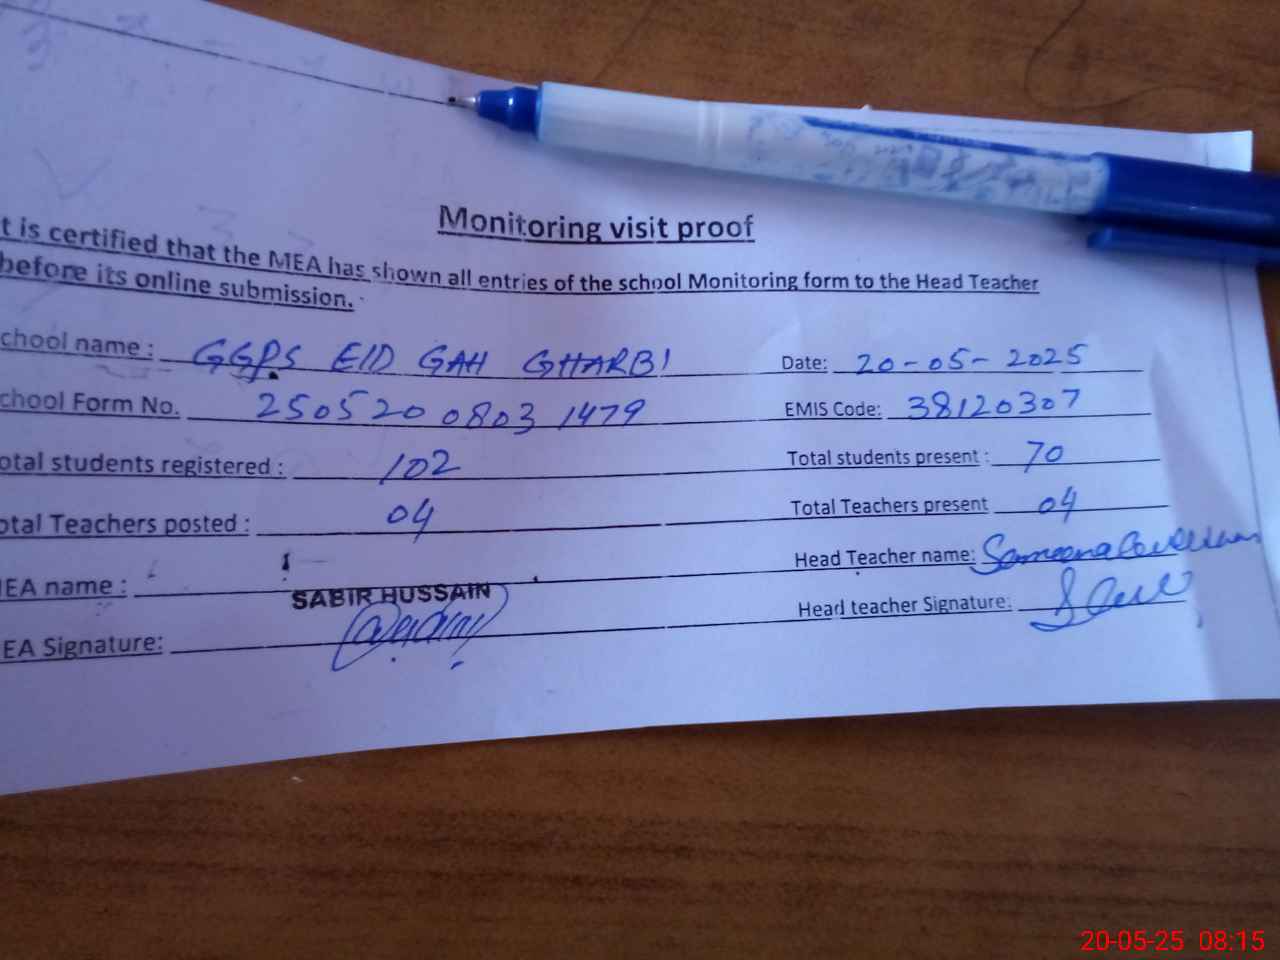 Monitoring visit proof
t is certified that the MEA has shown all entries of the school Monitoring form to the Head Teacher
before its online submission.
chool name : GGPS EID GAH GHARBI Date: 20-05-2025
chool Form No. 250520 0803 1479 EMIS Code: 38120307
otal students registered : 102 Total students present : 70
otal Teachers posted : 04 Total Teachers present 04
EA name : SABIR HUSSAIN Head Teacher name: Sameena
EA Signature: Head teacher Signature:
20-05-25 08:15